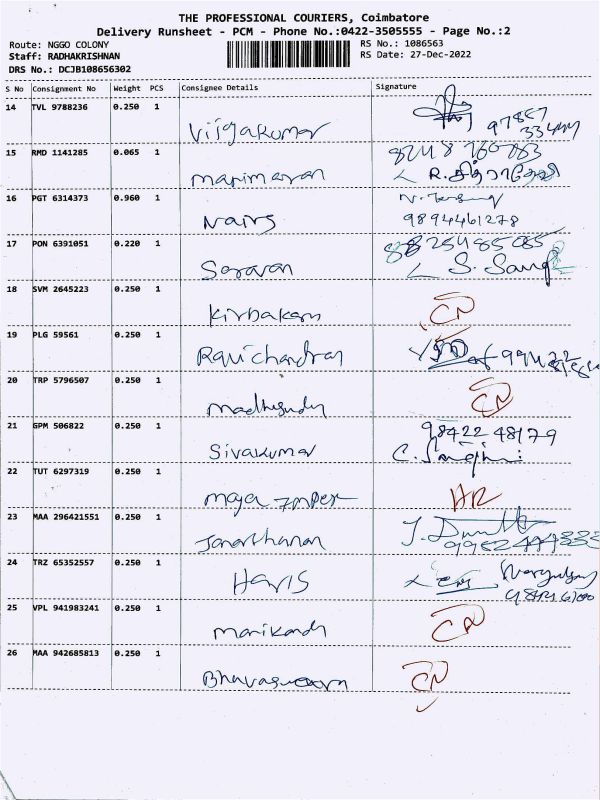 THE PROFESSIONAL COURIERS, Coimbatore
Delivery Runsheet - PCM - Phone No.:0422-3505555 - Page No.:2
Route: NGGO COLONY RS No.: 1086563
Staff: RADHAKRISHNAN RS Date: 27-Dec-2022
DRS No.: DCJB108656302
S No Consignment No Weight PCS Consignee Details Signature
14 TVL 9788236 0.250 1
Vijjgakumar 97887
33444
15 RMD 1141285 0.065 1
8248 760083
marimaran R.சித்ராதேவி
16 PGT 6314373 0.960 1
Nairs 9894461278
17 PON 6391051 0.220 1 8825485085
Saravan S. Sang
18 SVM 2645223 0.250 1
Kirbakarn CN
19 PLG 59561 0.250 1
Ravichandran
20 TRP 5796507 0.250 1
CN
21 GPM 506822 0.250 1 98422 48179
Sivakumar
22 TUT 6297319 0.250 1
maja
23 MAA 296421551 0.250 1
Janarthanan
24 TRZ 65352557 0.250 1
Haris
25 VPL 941983241 0.250 1
manikandn CN
26 MAA 942685813 0.250 1
CN